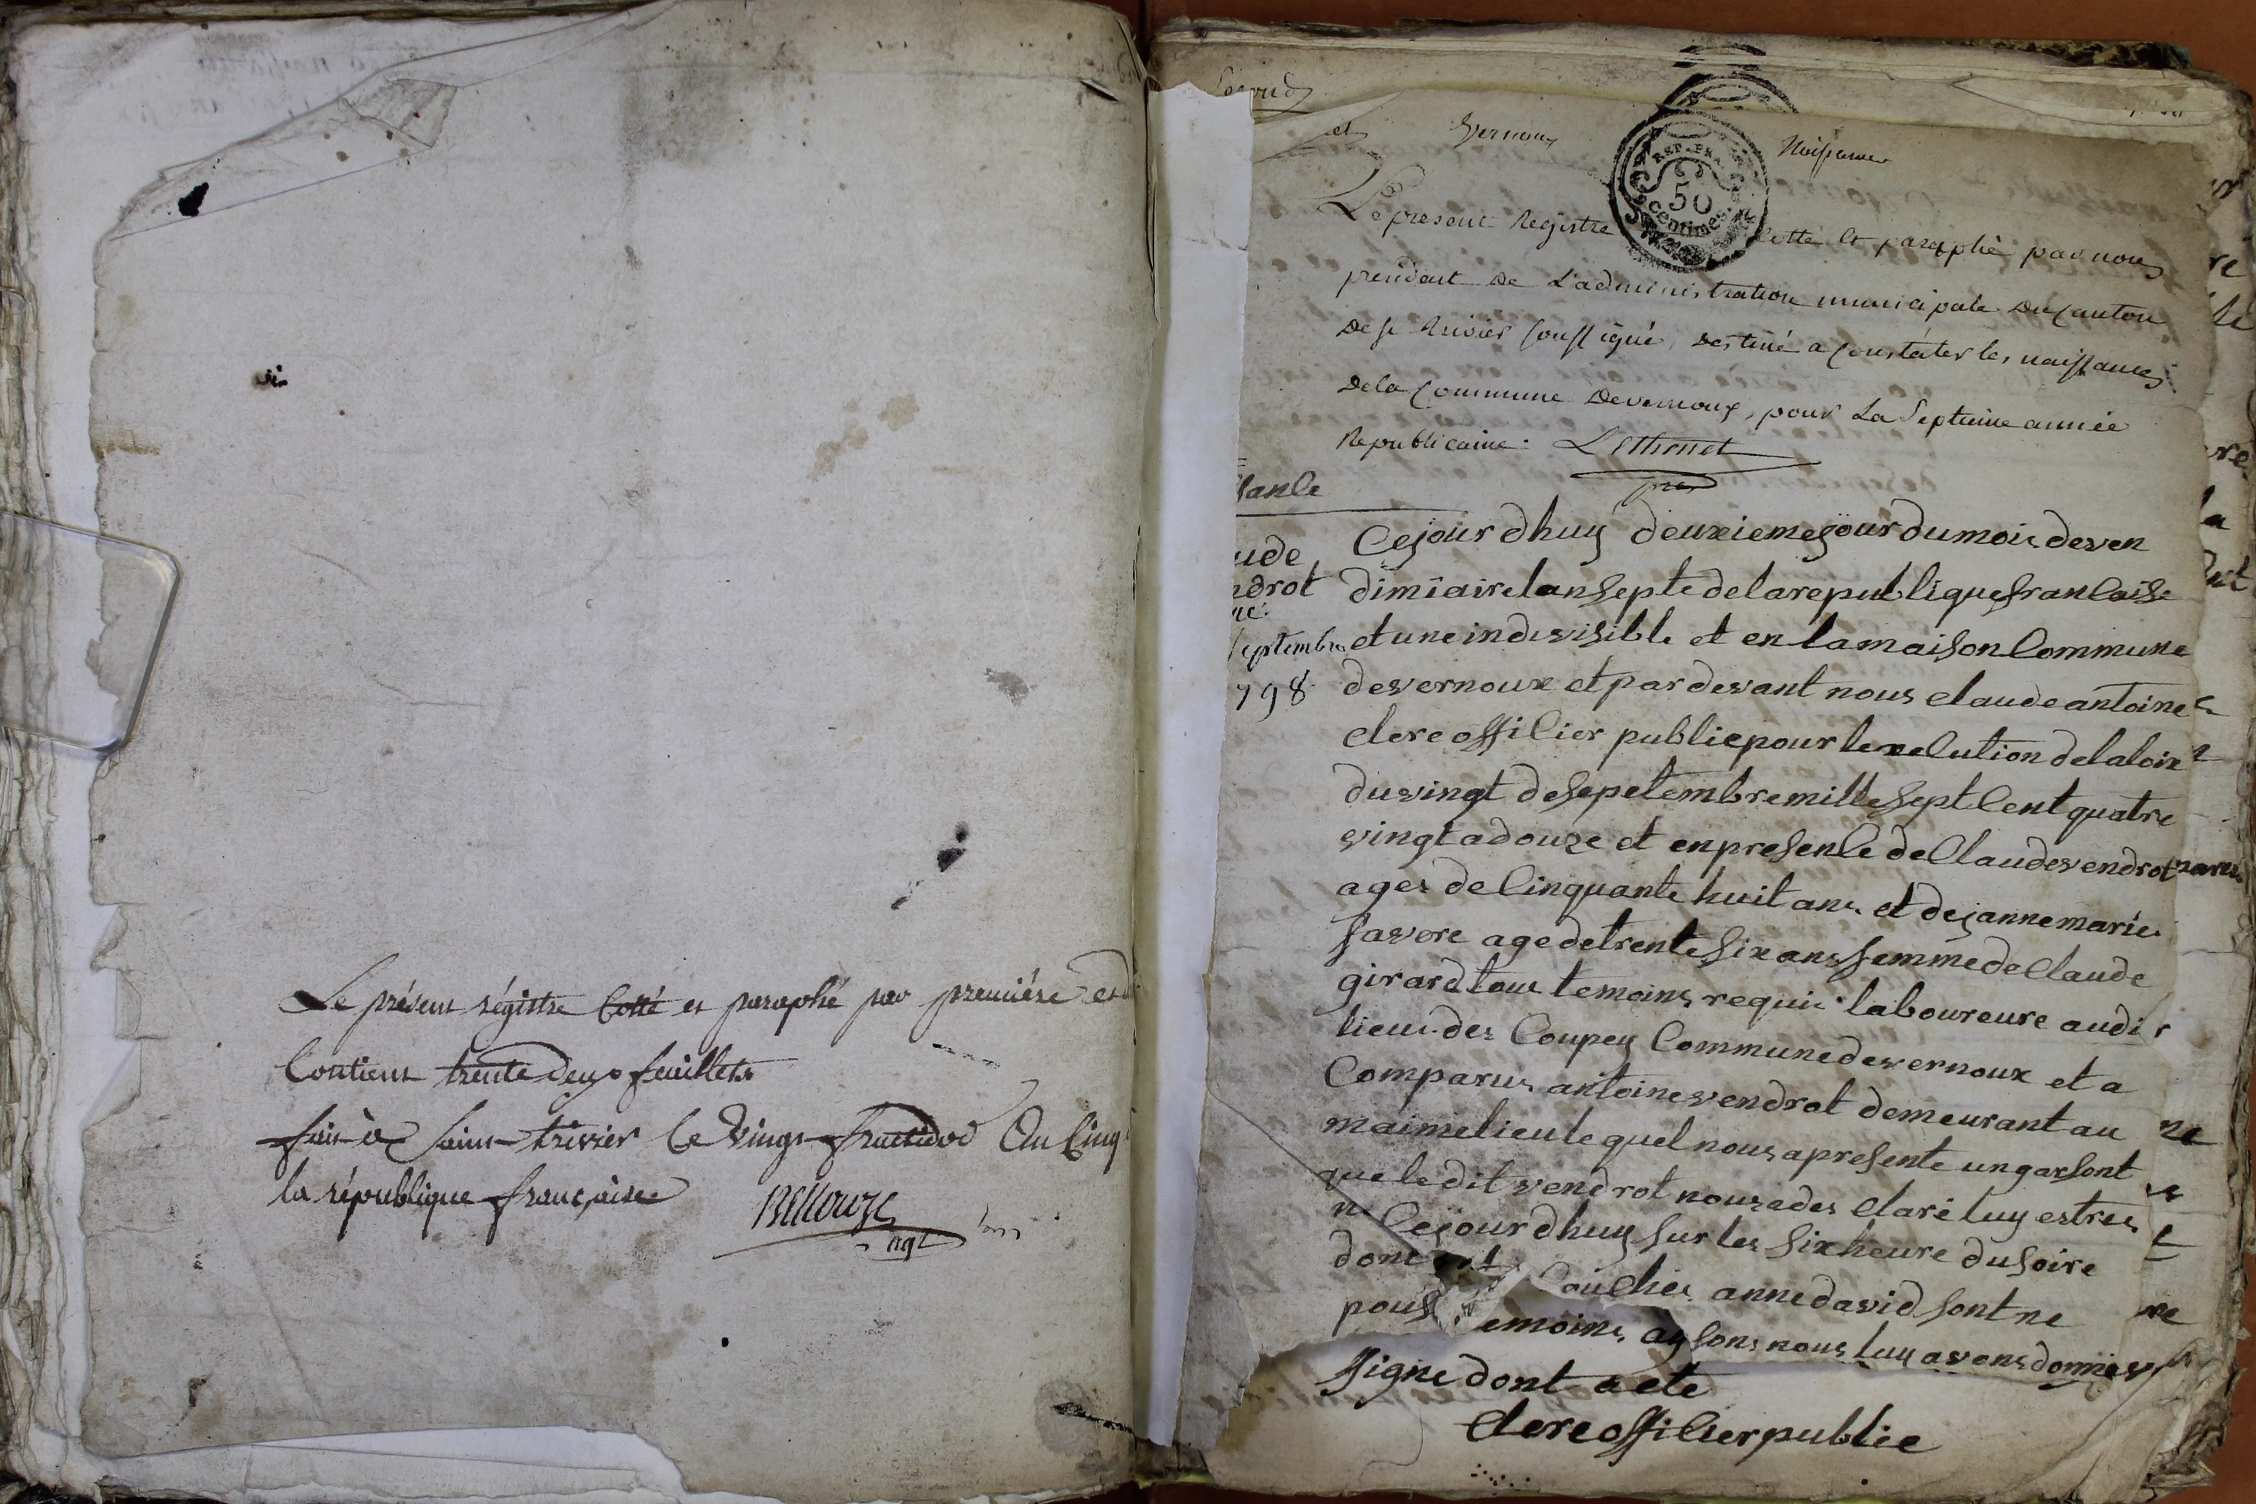 Le présent régistre Cotté et paraphé par premiére et d
Contient trente deux feuillets
fait à Saint trivier le vingt fructidor an Cinq
la république française
Bellouze
agt
vernoux
Naissances
REP. FRA.
50
centimes
Le present Registre cotté et paraphé par nous
président de L'administration municipale du Canton
de st trivier soussigné, destiné a Constater les naissances
de la Commune de vernoux, pour La Septieme année
Republicaine.
pres
ude
ndrot
septembre
798
Cejour dhuy deuxieme jour du moi de ven
dimiaire lan septe de la republique francaise
et une indivisible et en la maison Commune
de vernoux et par devant nous claude antoine
clere officier publie pour lexecution de la loix
du vingt de sepetembre mille sept Cent quatre
vingt a douze et en presence de Claude vendrot
ages de Cinquante huit ans et de janne marie
favere age de trente six ans femme de Claude
girard tous temoins requis laboureure audi
lieu des Coupey Commune de vernoux et a
Comparus antoine vendrot demeurant au
maime lieu lequel nous a presente un garsont
que le dit vendrot nous a des clare luy estre
n Cejour dhuy sur les six heure du soire
dont anne david sont ne
pous emoins ay sons nous luy avons donnes
signe dont acte
clere officier publie